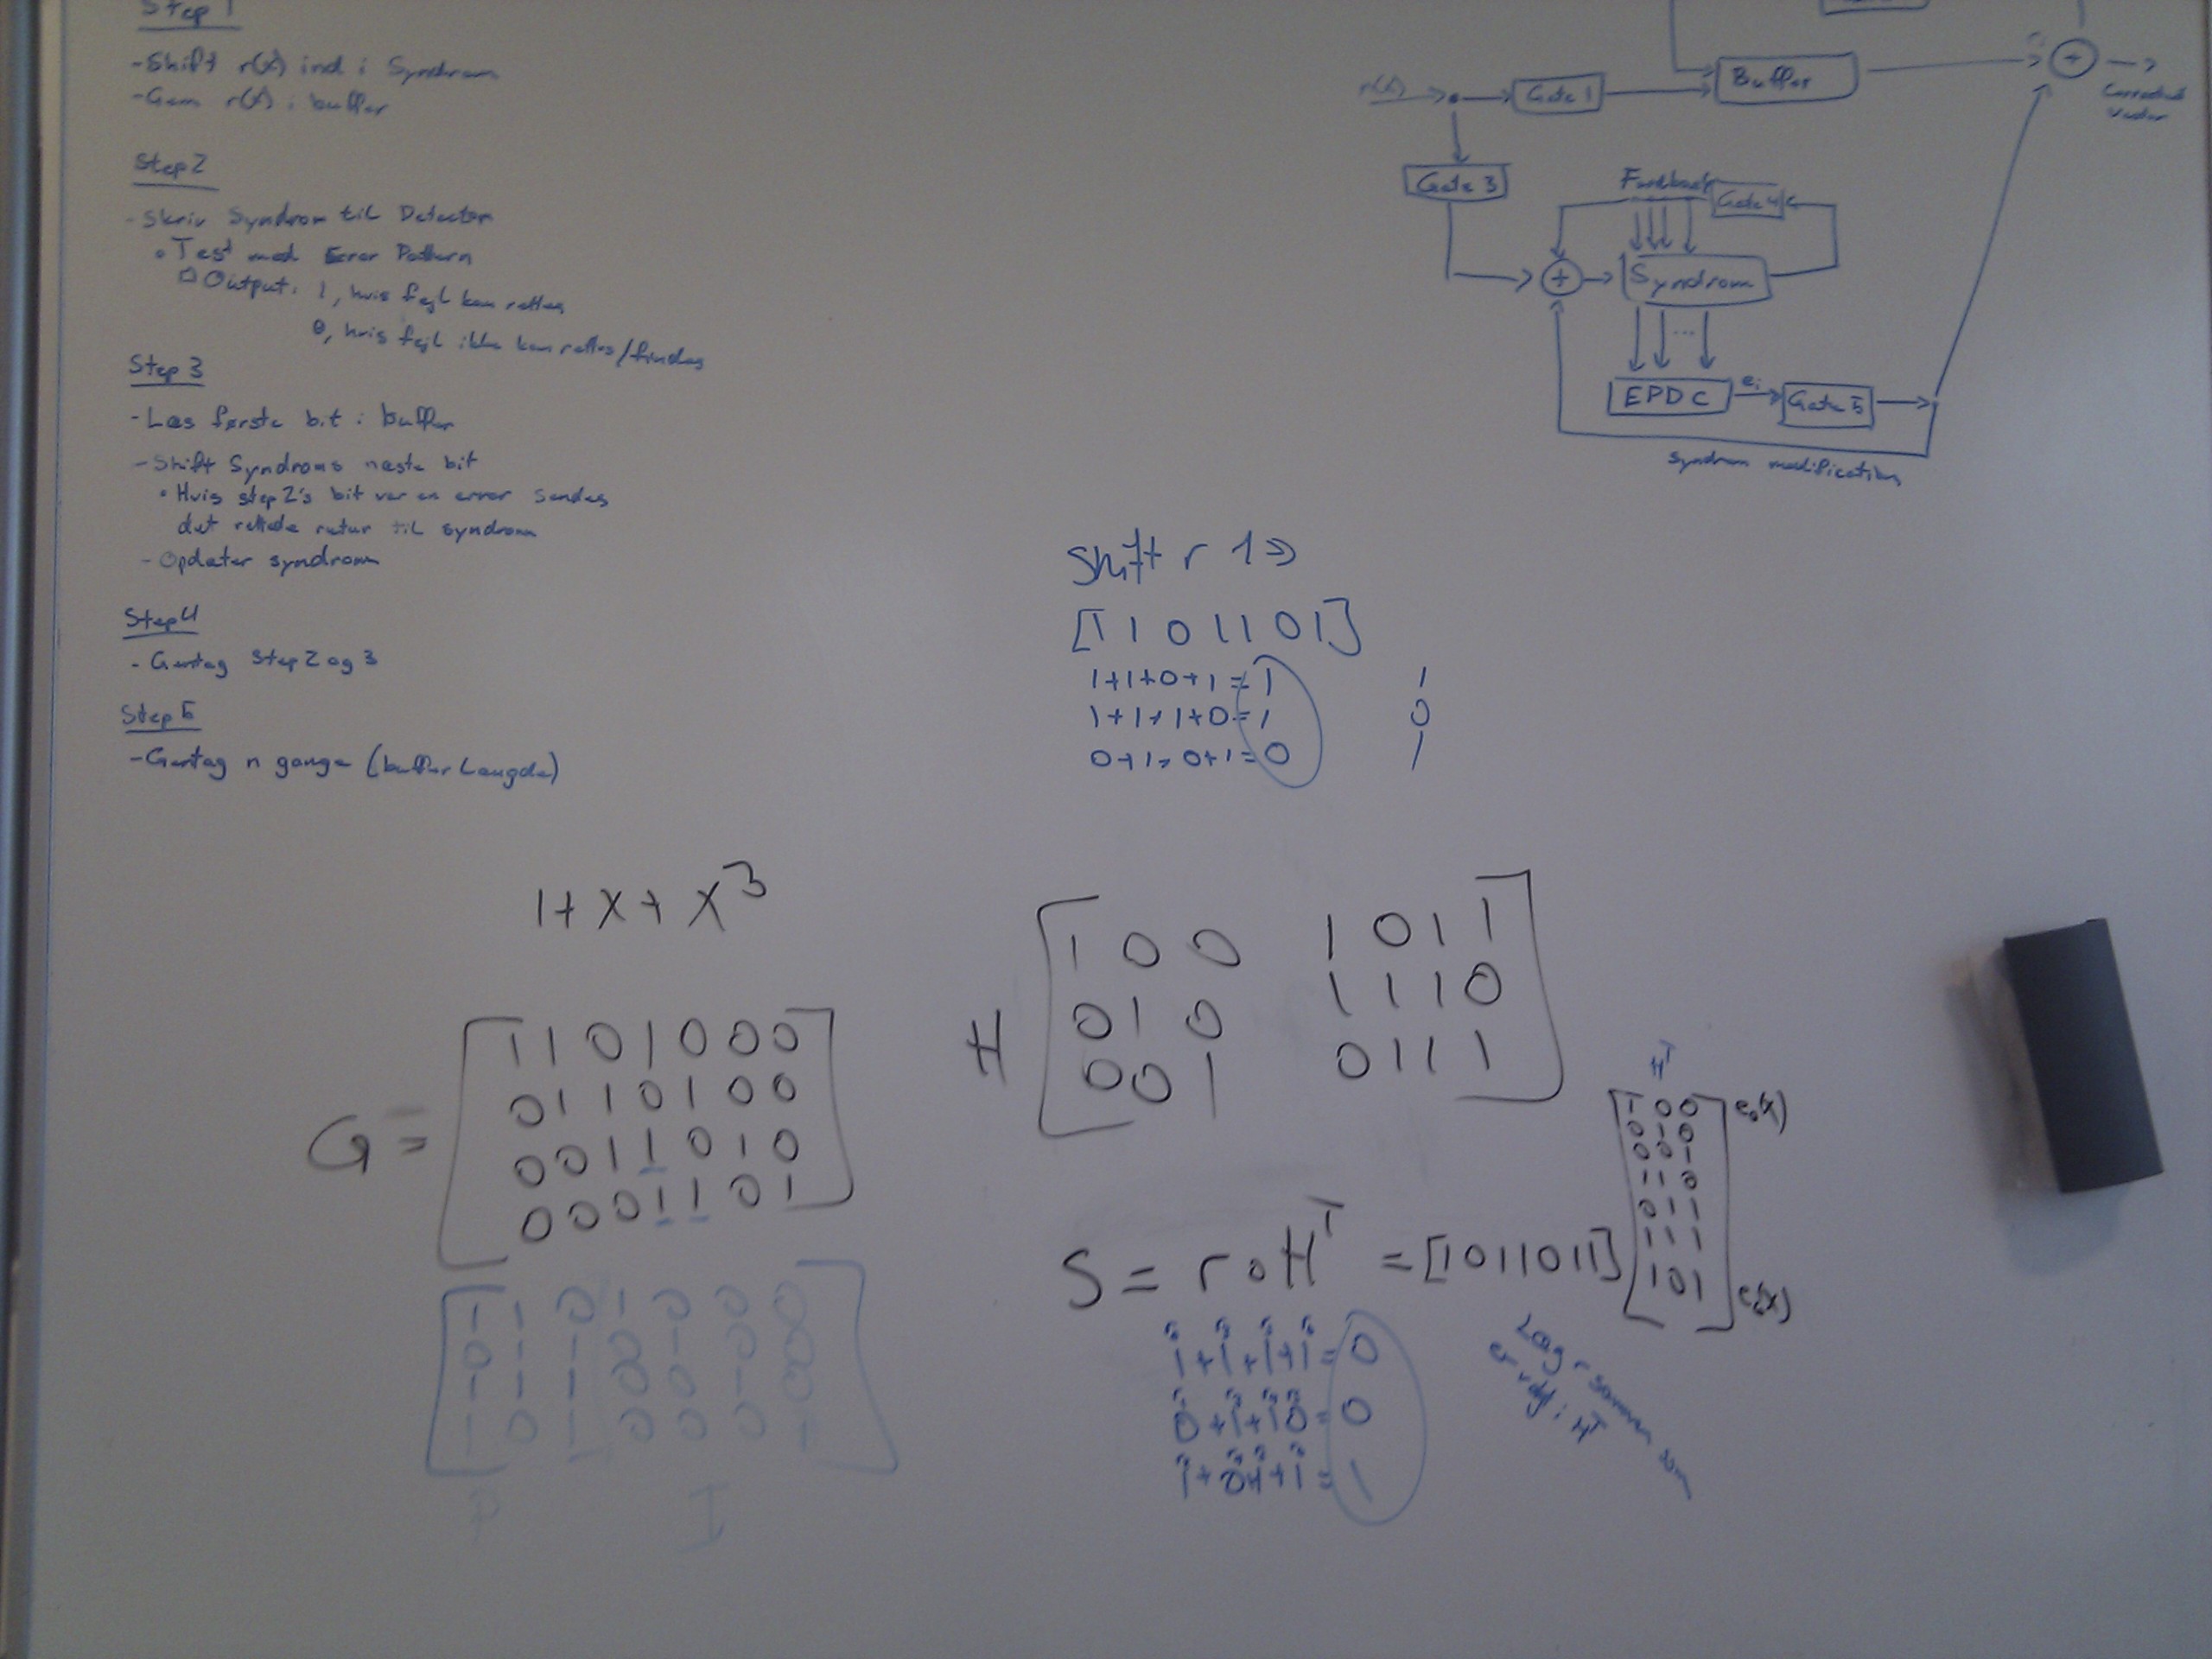 Step 1
- Shift r(x) ind i Syndrom
- Gem r(x) i buffer
Step 2
- Skriv Syndrom til Detector
• Test mod Error Pattern
□ Output: 1, hvis fejl kan rettes
0, hvis fejl ikke kan rettes/findes
Step 3
- Læs første bit i buffer
- Shift Syndroms næste bit
• Hvis step 2's bit var en error sendes
det rettede retur til syndrom
- Opdater syndrom
Step 4
- Gentag Step 2 og 3
Step 5
- Gentag n gange (buffer længde)
r(x)
Gate 1
Buffer
+
Corrected
vector
Gate 3
Feedback
Gate 4
+
Syndrom
...
EPDC
ei
Gate 5
Syndrom modification
Shift r 1 >>
[1 1 0 1 1 0 1]
1+1+0+1=1 1
1+1+1+0=1 0
0+1+0+1=0 1
1+x+x³
H
[1 0 0 1 0 1 1
0 1 0 1 1 1 0
0 0 1 0 1 1 1]
G =
[1 1 0 1 0 0 0
0 1 1 0 1 0 0
0 0 1 1 0 1 0
0 0 0 1 1 0 1]
[1 1 0 1 0 0 0
0 1 1 0 1 0 0
1 1 1 0 0 1 0
1 0 1 0 0 0 1]
P I
S = r∘Hᵀ = [1011011]
Hᵀ
[1 0 0
0 1 0
0 0 1
1 1 0
0 1 1
1 1 1
1 0 1]
e₀(x)
e₆(x)
1+1+1+1=0
0+1+1+0=0
1+0+1+1=1
Læg r sammen som
er vdi i Hᵀ